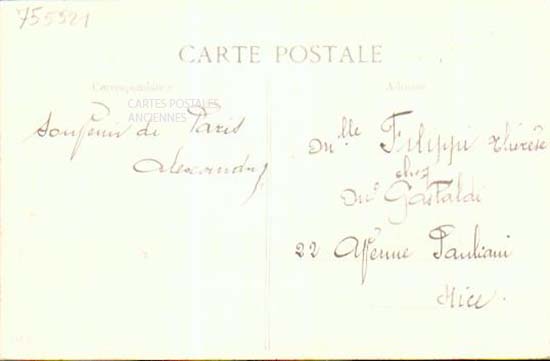 755521
CARTE POSTALE
Correspondance
Adresse
CARTES POSTALES
ANCIENNES
Souvenir de Paris
Alexandry
Mlle Filippi Thérèse
chez
Mr Gastaldi
22 Avenue Pauliani
Nice.